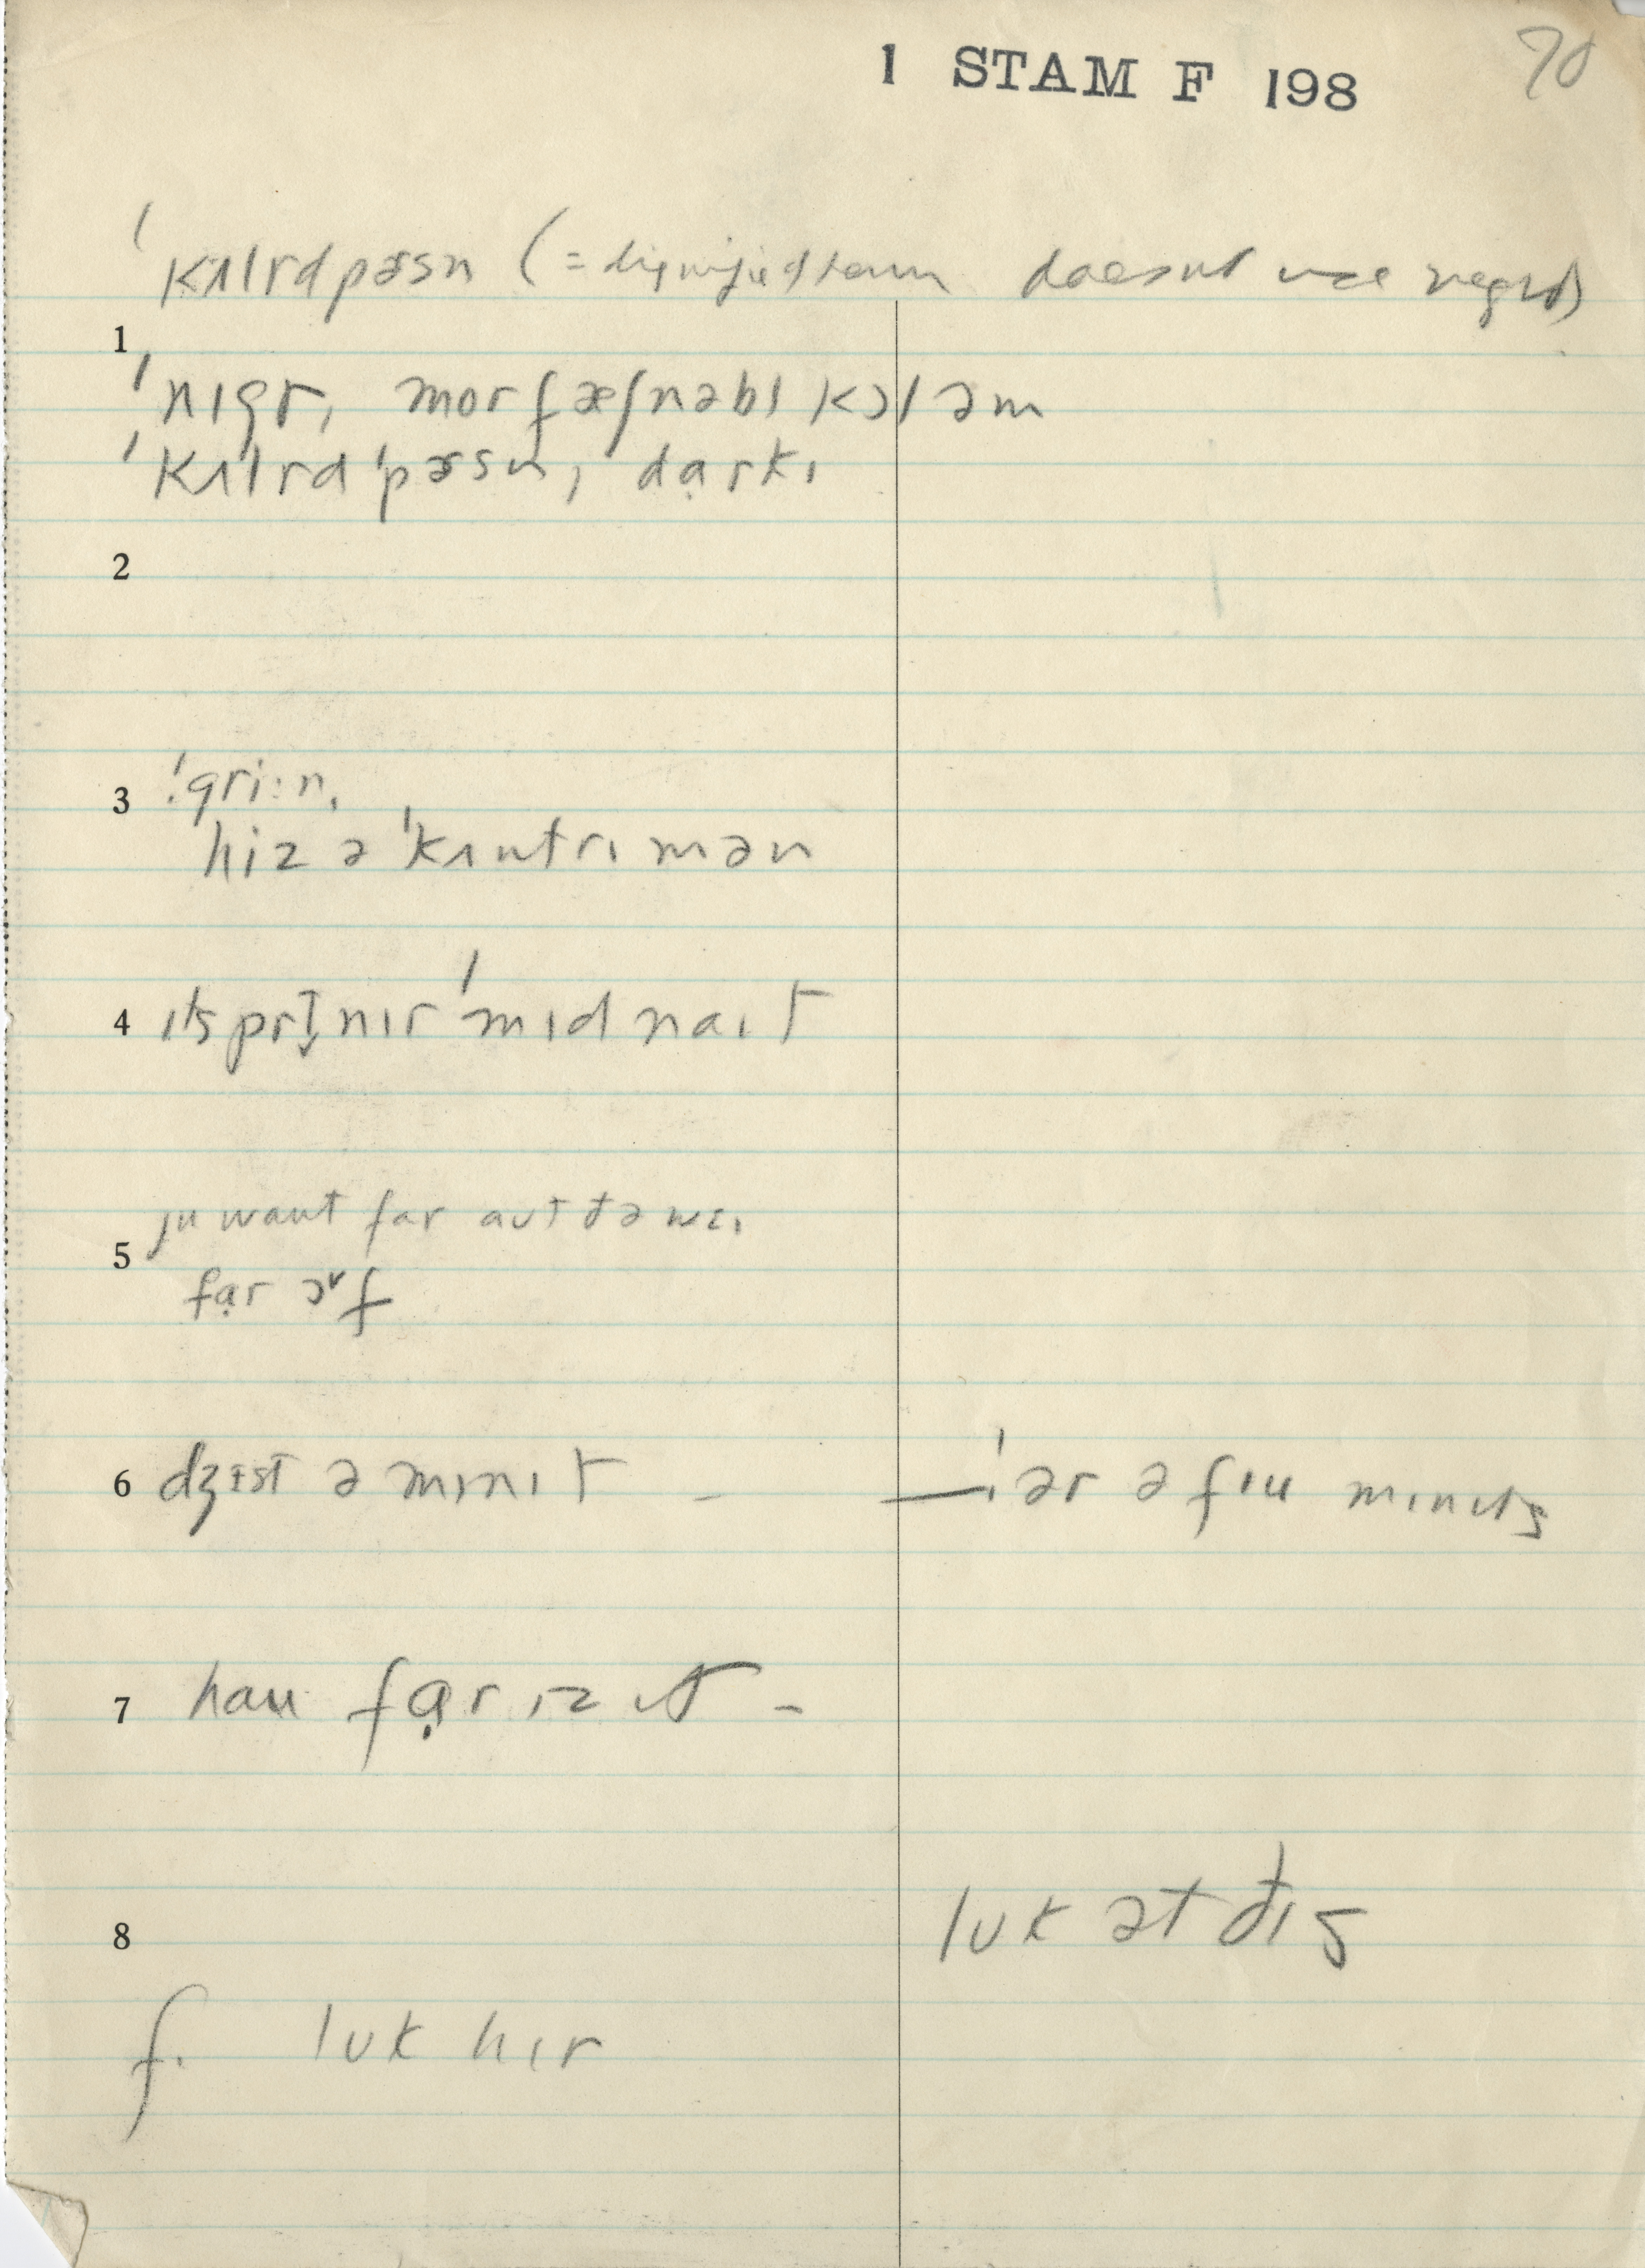 1 STAM F 198
70
ˈkʌlrd pɚsn (= dignified term doesn't use negro)
1
ˈnɪgr, mor fæʃnəbl kɔl əm
ˈkʌlrd ˈpɚsn, dạrkɪ
2
3 ˈgri:n,
hiz ə ˈkʌntrɪ mən
4 ɪts prɪ nɪr ˈmɪdnaɪt
ju want far aʊt đə wɛɪ
5
fạr ɔ˅f
6 dʒɪst ə mɪnɪt - —ˈiər ə fɪu mɪnɪts
7 hau fạr ɪz ɪt -
8 lʊk ət đɪs
f. lʊk hɪr